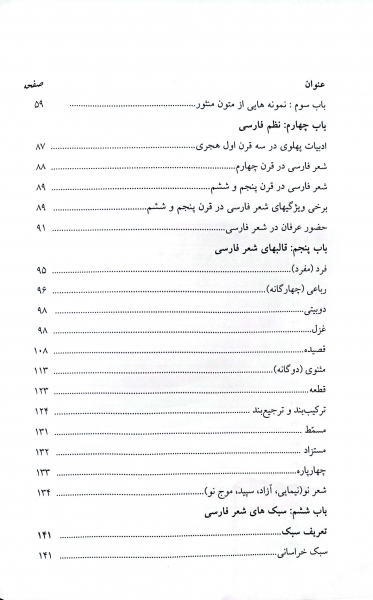 عنوان صفحه
باب سوم : نمونه هایی از متون منثور ۵۹
باب چهارم: نظم فارسی
ادبیات پهلوی در سه قرن اول هجری ۸۷
شعر فارسی در قرن چهارم ۸۸
شعر فارسی در قرن پنجم و ششم ۸۹
برخی ویژگیهای شعر فارسی در قرن پنجم و ششم ۸۹
حضور عرفان در شعر فارسی ۹۱
باب پنجم: قالبهای شعر فارسی
فرد (مفرد) ۹۵
رباعی (چهارگانه) ۹۶
دوبیتی ۹۸
غزل ۹۸
قصیده ۱۰۸
مثنوی (دوگانه) ۱۱۳
قطعه ۱۲۳
ترکیب‌بند و ترجیع‌بند ۱۲۴
مسمّط ۱۳۱
مستزاد ۱۳۲
چهارپاره ۱۳۳
شعر نو(نیمایی، آزاد، سپید، موج نو) ۱۳۴
باب ششم: سبک های شعر فارسی
تعریف سبک ۱۴۱
سبک خراسانی ۱۴۱